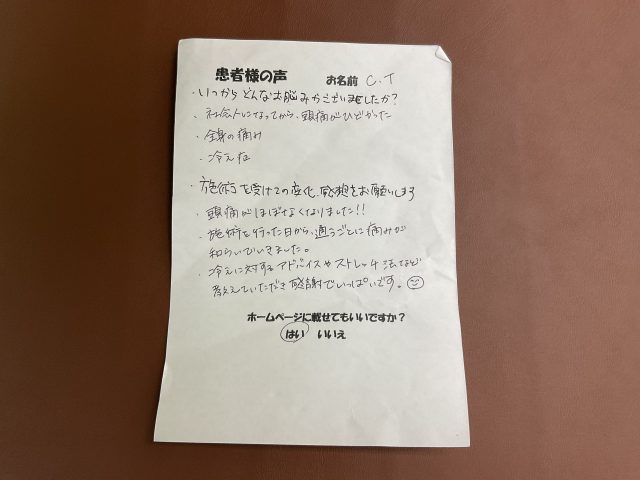 患者様の声 お名前 C.T
・いつからどんなお悩みがございましたか?
・社会人になってから、頭痛がひどかった
・全身の痛み
・冷え性
・施術を受けての変化、感想をお願いします
・頭痛がほぼなくなりました!!
・施術を行った日から、通うごとに痛みが
和らいでいきました。
・冷えに対するアドバイスやストレッチ法など
教えていただき感謝でいっぱいです。
ホームページに載せてもいいですか?
はい いいえ